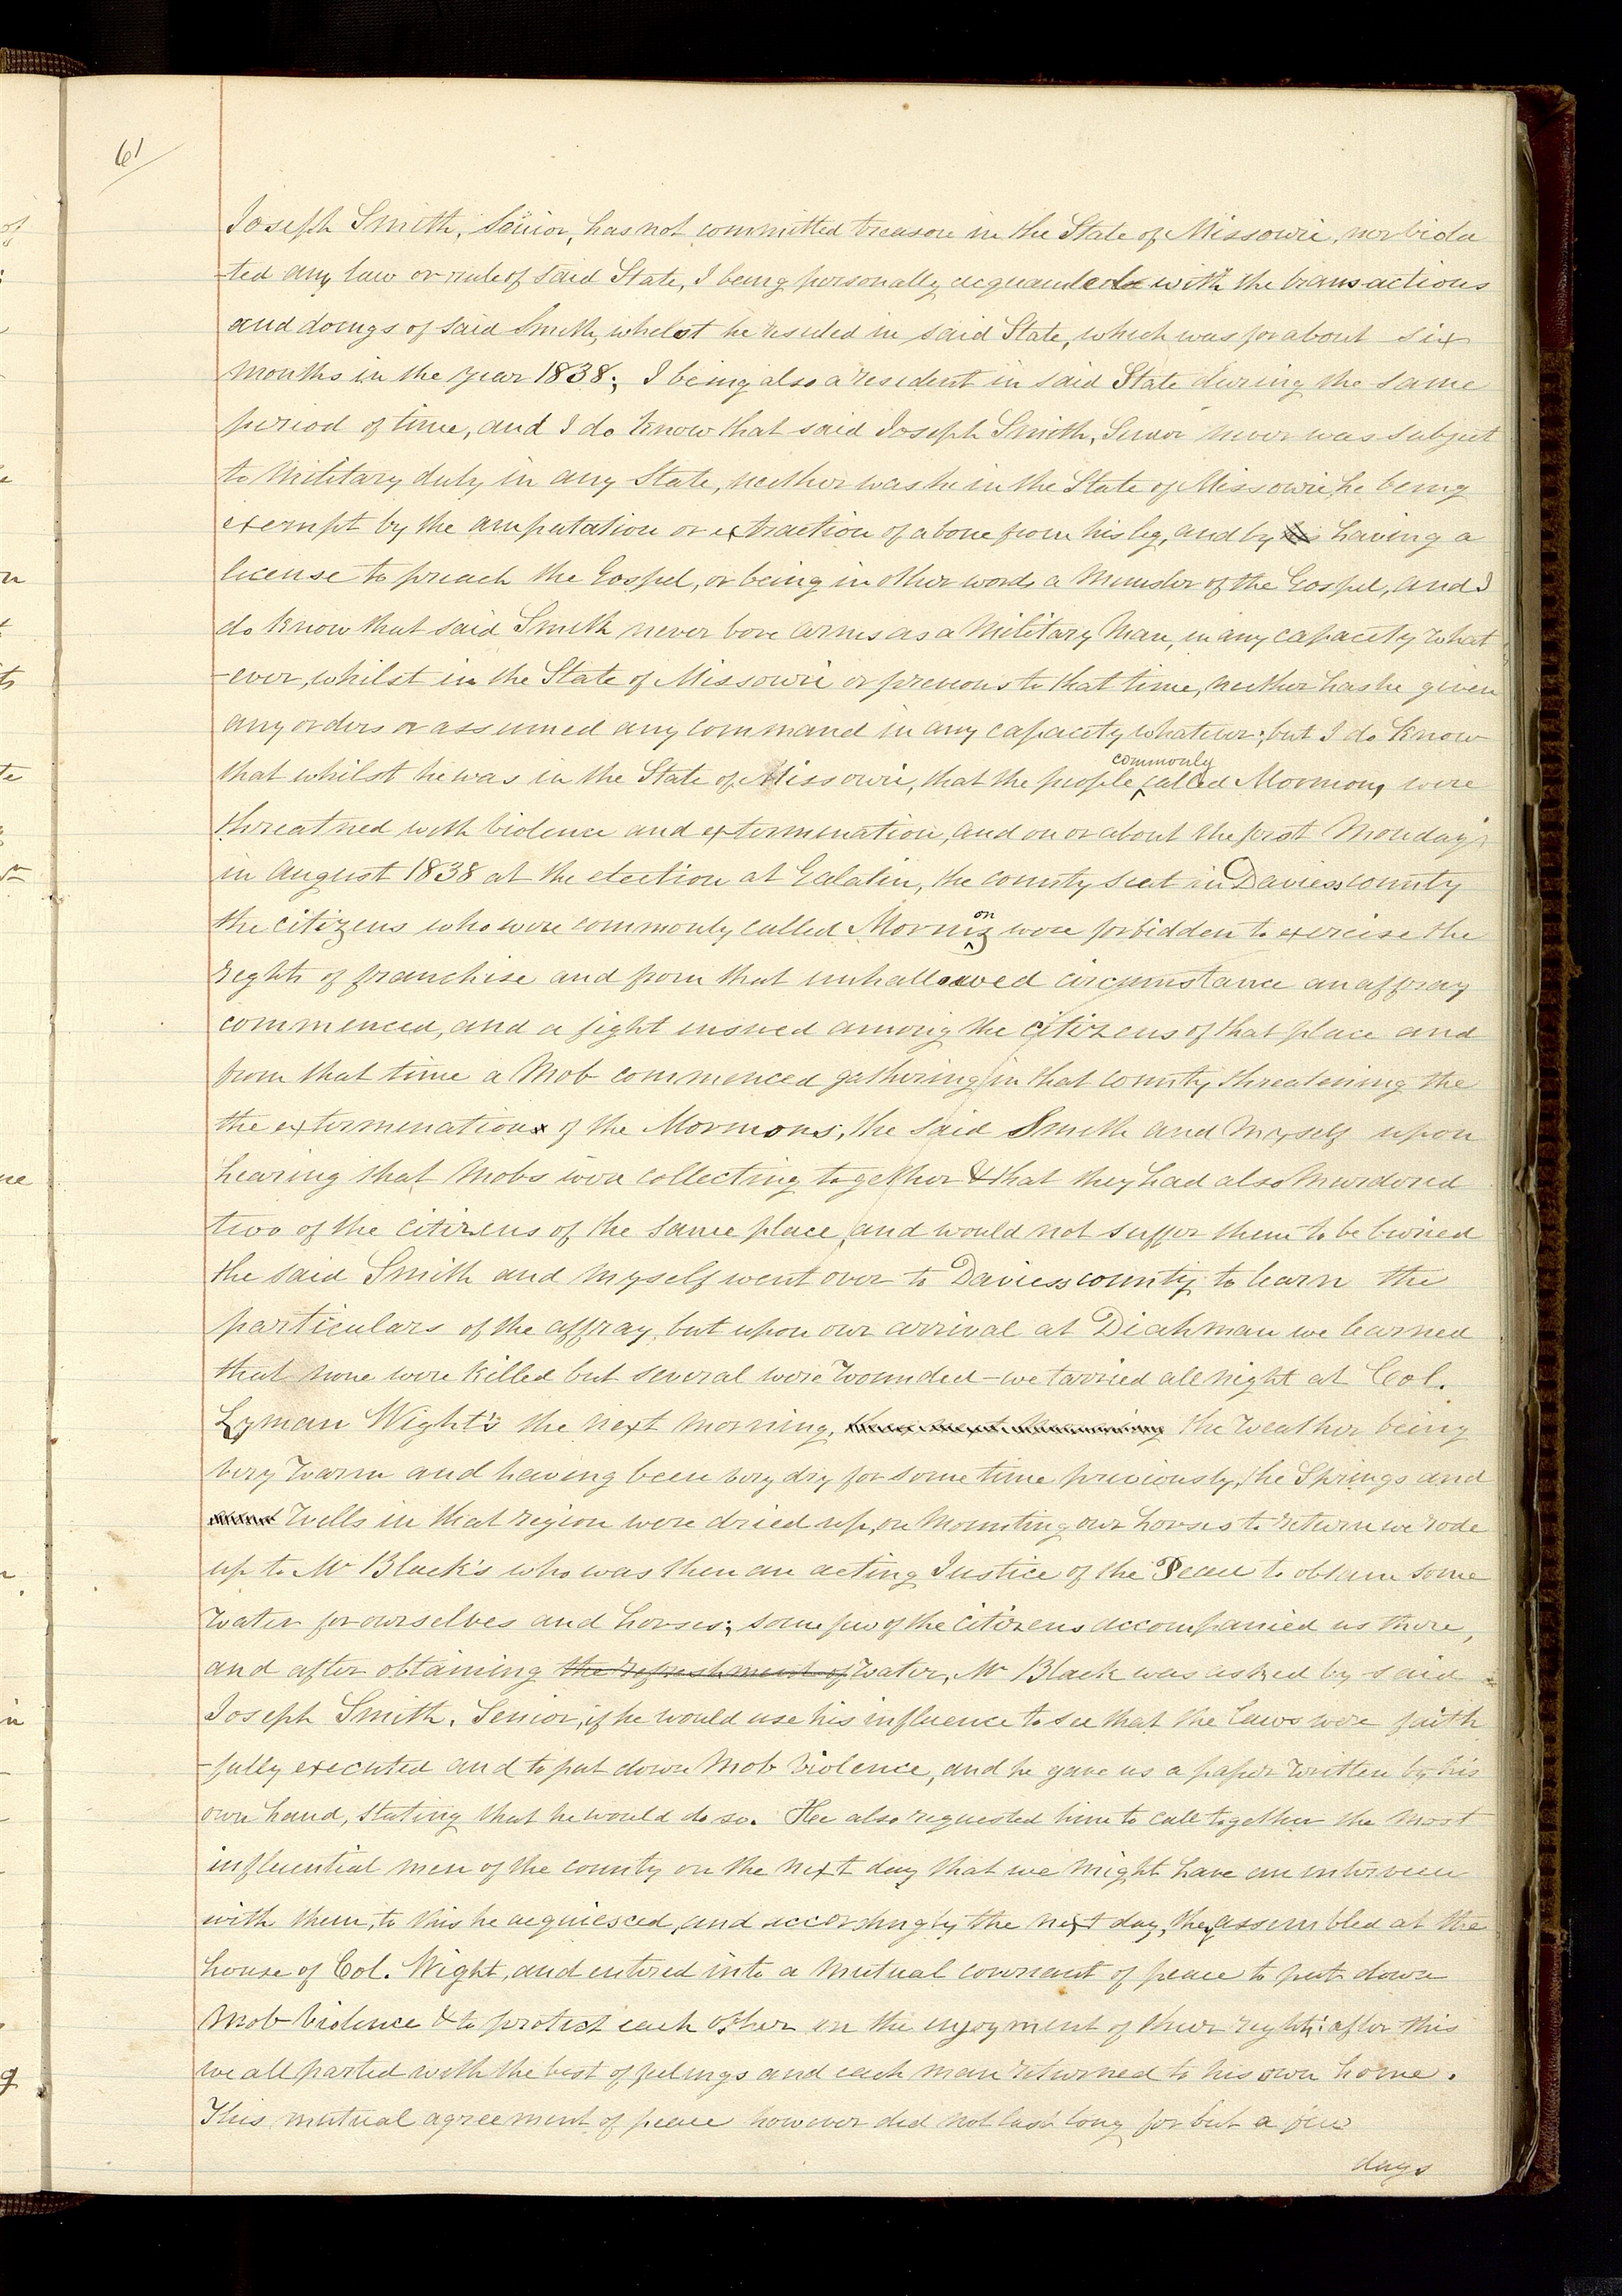 61
Joseph Smith, Senior, has not committed treason in the State of Missouri, nor viola
ted any law or rule of said State, I being personally acquainted with the transactions
and doings of said Smith, whilst he resided in said State, which was for about six
months in the year 1838; I being also a resident in said State during the same
period of time, and I do know that said Joseph Smith, Senior never was subject
to Military duty in any State, neither was he in the State of Missouri, he being
exempt by the amputation or extraction of a bone from his leg, and by having a
license to preach the Gospel, or being in other words a Minister of the Gospel, and I
do know that said Smith never bore arms as a Military Man, in any capacity what
-ever, whilst in the State of Missouri or previous to that time, neither has he given
any orders or assumed any command in any capacity whatever; but I do know
that whilst he was in the State of Missouri, that the people commonly called Mormons, were
threatned with violence and extermination, and on or about the first Monday
in August 1838 at the election at Galatin, the county seat in Daviess county
the citizens who were commonly called Mormons were forbidden to exercise the
rights of franchise and from that unhallowed circumstance an affray
commenced, and a fight ensued among the citizens of that place and
from that time a Mob commenced gathering in that county threatening the
the extermination of the Mormons; the said Smith and Myself upon
hearing that Mobs were collecting together & that they had also Murdered
two of the citizens of the same place, and would not suffer them to be buried
the said Smith and Myself went over to Daviess county to learn the
particulars of the affray, but upon our arrival at Diahman we learned
that none were killed but several were wounded - we tarried all night at Col.
Lyman Wight's the next morning, the next morning the weather being
very warm and having been very dry for some time previously, the Springs and
and Wells in that region were dried up, on Mounting our horses to return we rode
up to Mr Black's who was then an acting Justice of the Peace to obtain some
Water for ourselves and horses; some few of the citizens accompanied us there,
and after obtaining the refreshment of water, Mr Black was asked by said
Joseph Smith, Senior, if he would use his influence to see that the laws were faith
-fully executed and to put down Mob Violence, and he gave us a paper written by his
own hand, stating that he would do so. He also requested him to call together the Most
influential men of the county on the next day that we might have an interview
with them, to this he acquiesced, and accordingly the next day, they assembled at the
house of Col. Wight, and entered into a Mutual covenant of peace to put down
Mob Violence & to protect each other in the enjoyment of their rights: after this
we all parted with the best of feelings and each man returned to his own home.
This mutual agreement of peace however did not last long for but a few
days